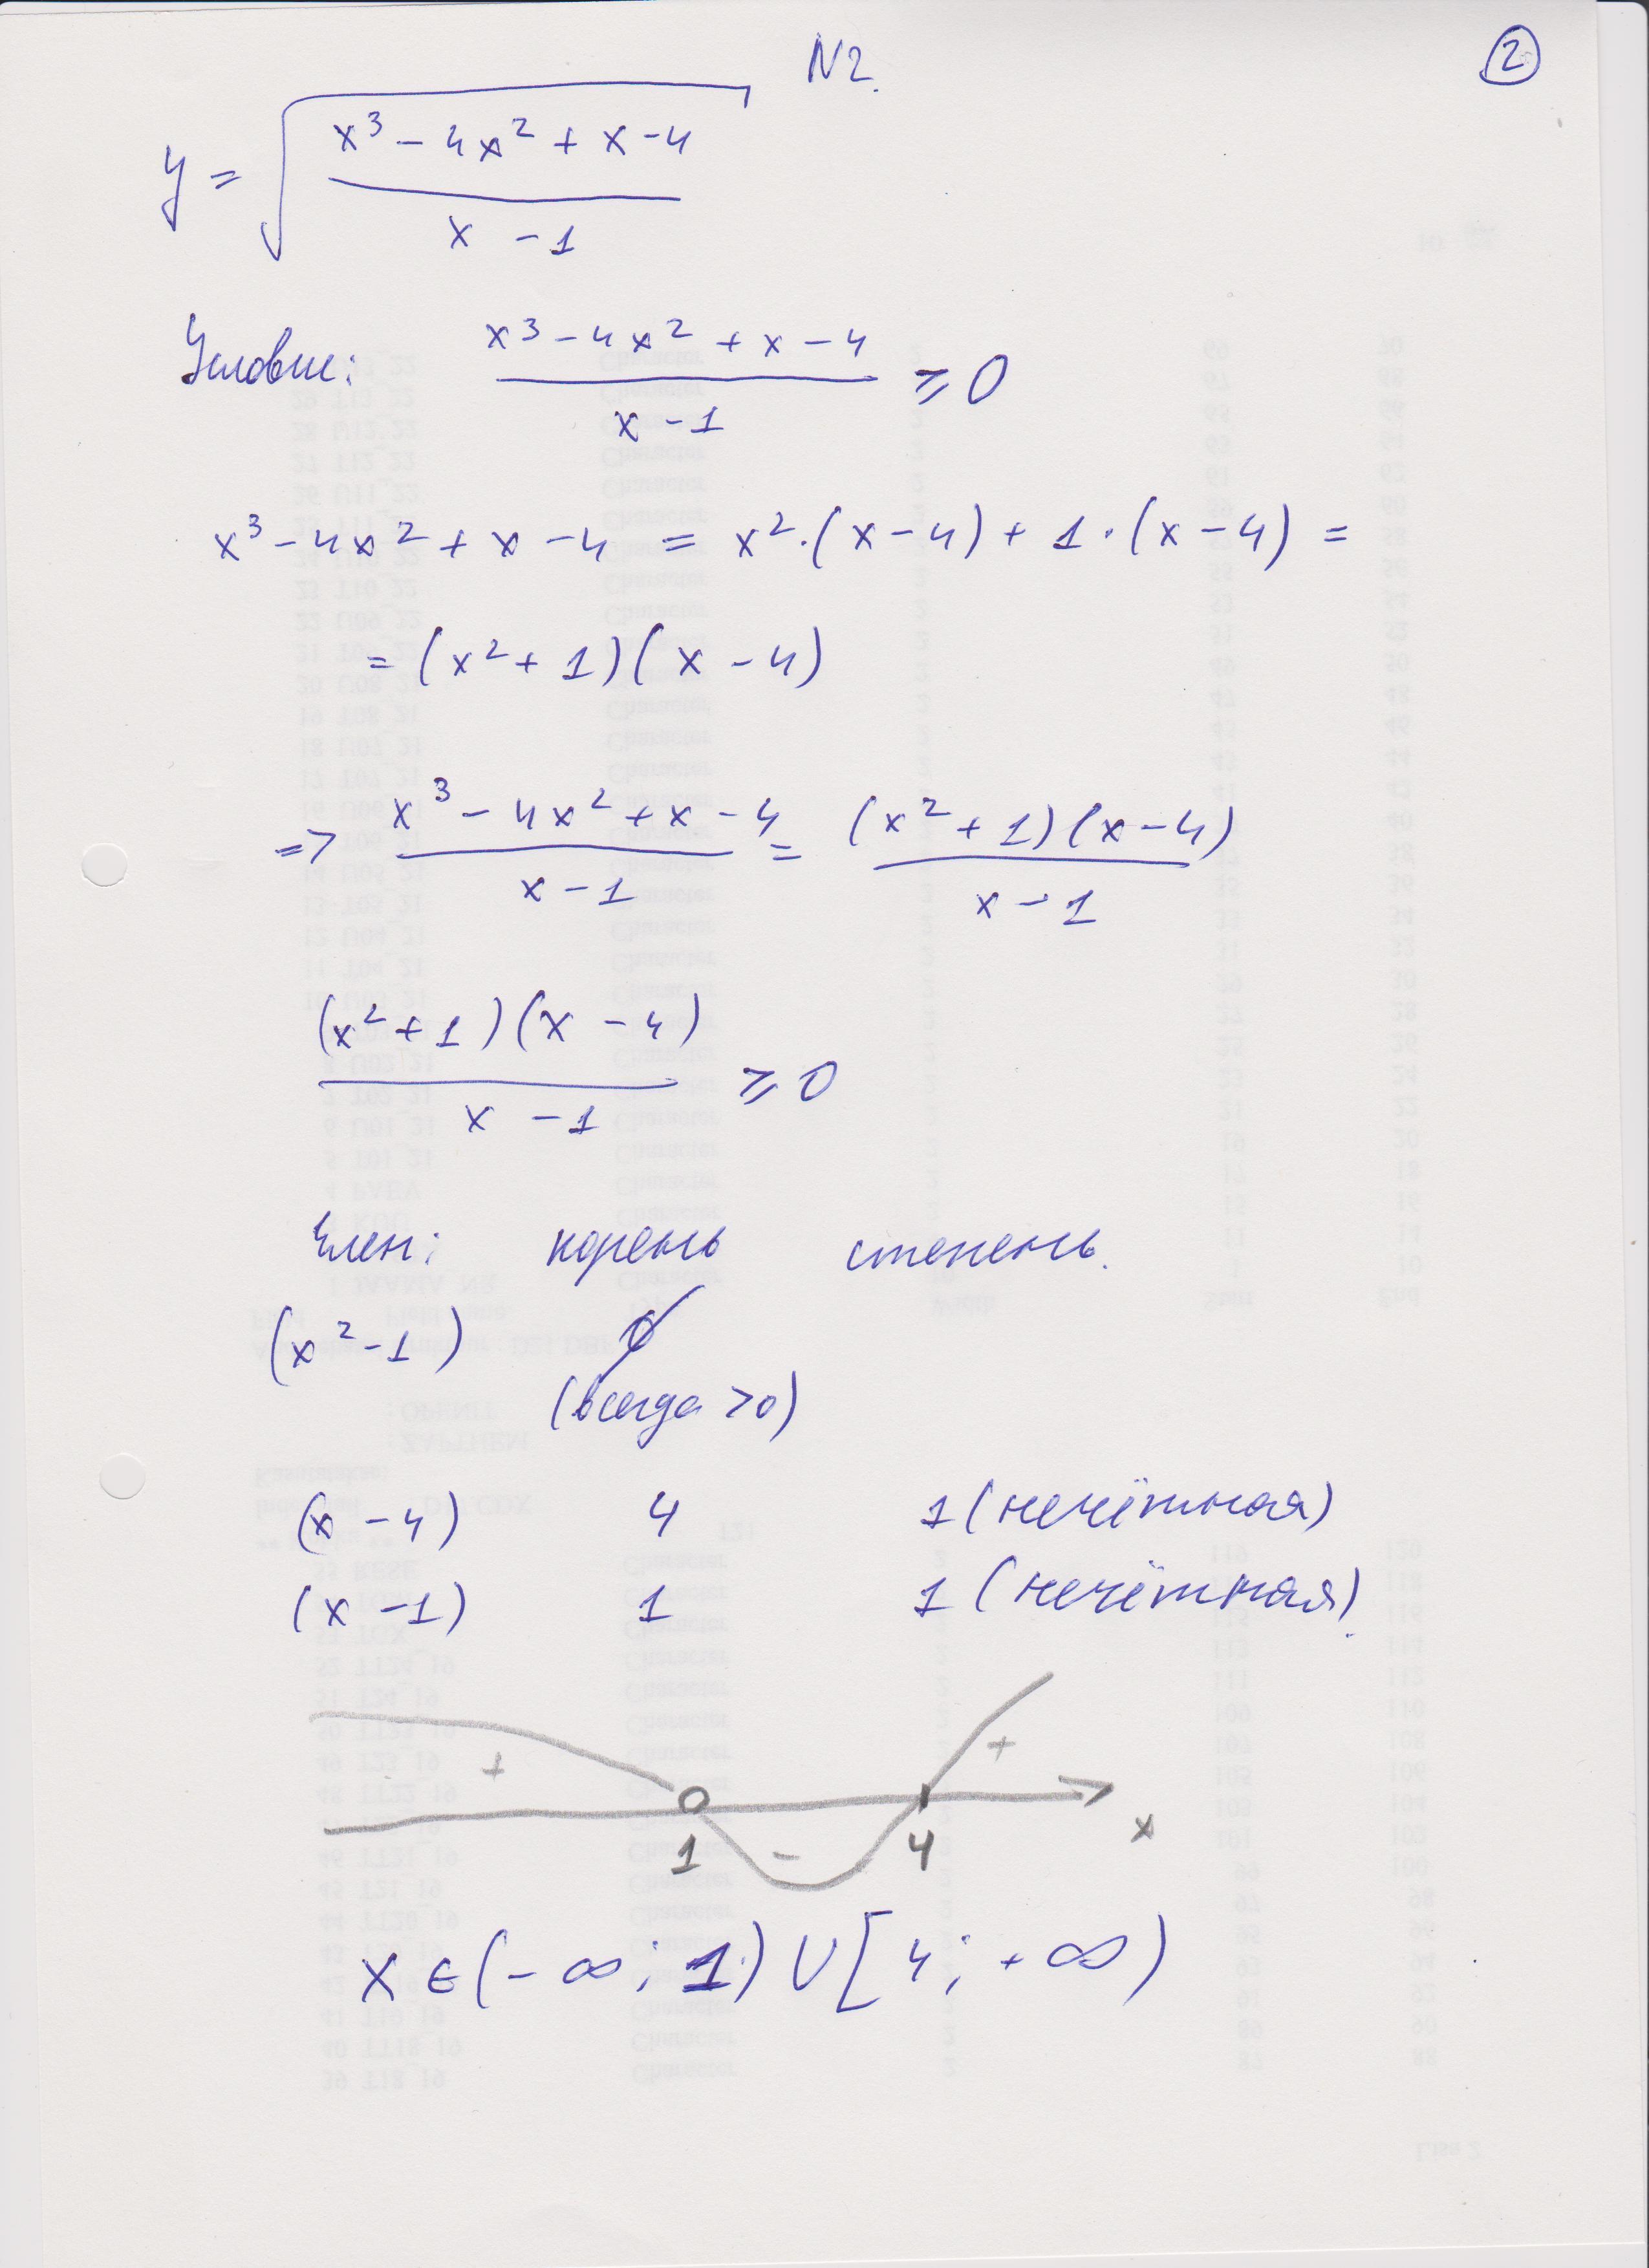 N2.
2
y = √((x³ - 4x² + x - 4)/(x - 1))
Условие: (x³ - 4x² + x - 4)/(x - 1) ⩾ 0
x³ - 4x² + x - 4 = x²·(x - 4) + 1·(x - 4) =
= (x² + 1)(x - 4)
=> (x³ - 4x² + x - 4)/(x - 1) = ((x² + 1)(x - 4))/(x - 1)
((x² + 1)(x - 4))/(x - 1) ⩾ 0
Член: корень степень.
(x² - 1) ∅
(всегда >0)
(x - 4) 4 1 (нечётная)
(x - 1) 1 1 (нечётная).
+ - +
1 4 x
x ∈ (-∞; 1) ∪ [4; +∞)